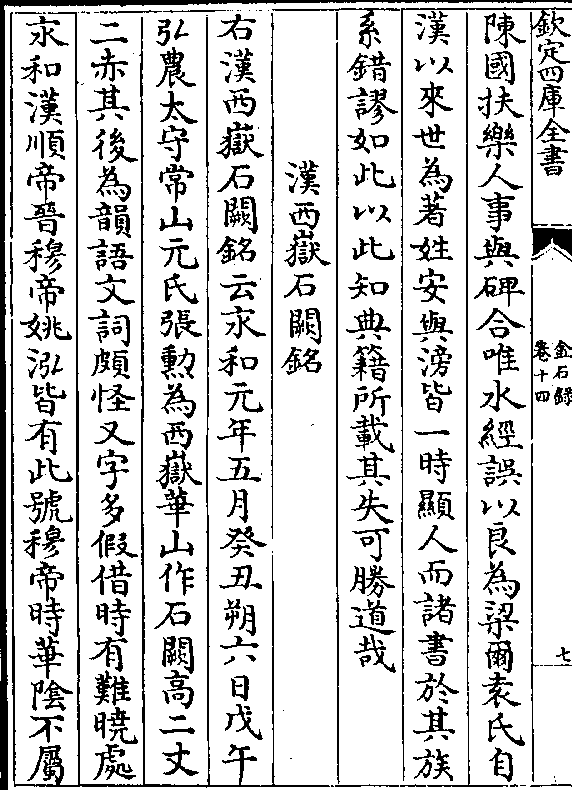 欽定四庫全書
金石錄
卷十四
七
陳國扶樂人事與碑合唯水經誤以良為梁爾袁氏自
漢以來世為著姓安與滂皆一時顯人而諸書於其族
系錯謬如此以此知典籍所載其失可勝道哉
漢西嶽石闕銘
右漢西嶽石闕銘云永和元年五月癸丑朔六日戊午
弘農太守常山元氏張勲為西嶽華山作石闕高二丈
二赤其後為韻語文詞頗怪又字多假借時有難曉處
永和漢順帝晉穆帝姚泓皆有此號穆帝時華陰不屬